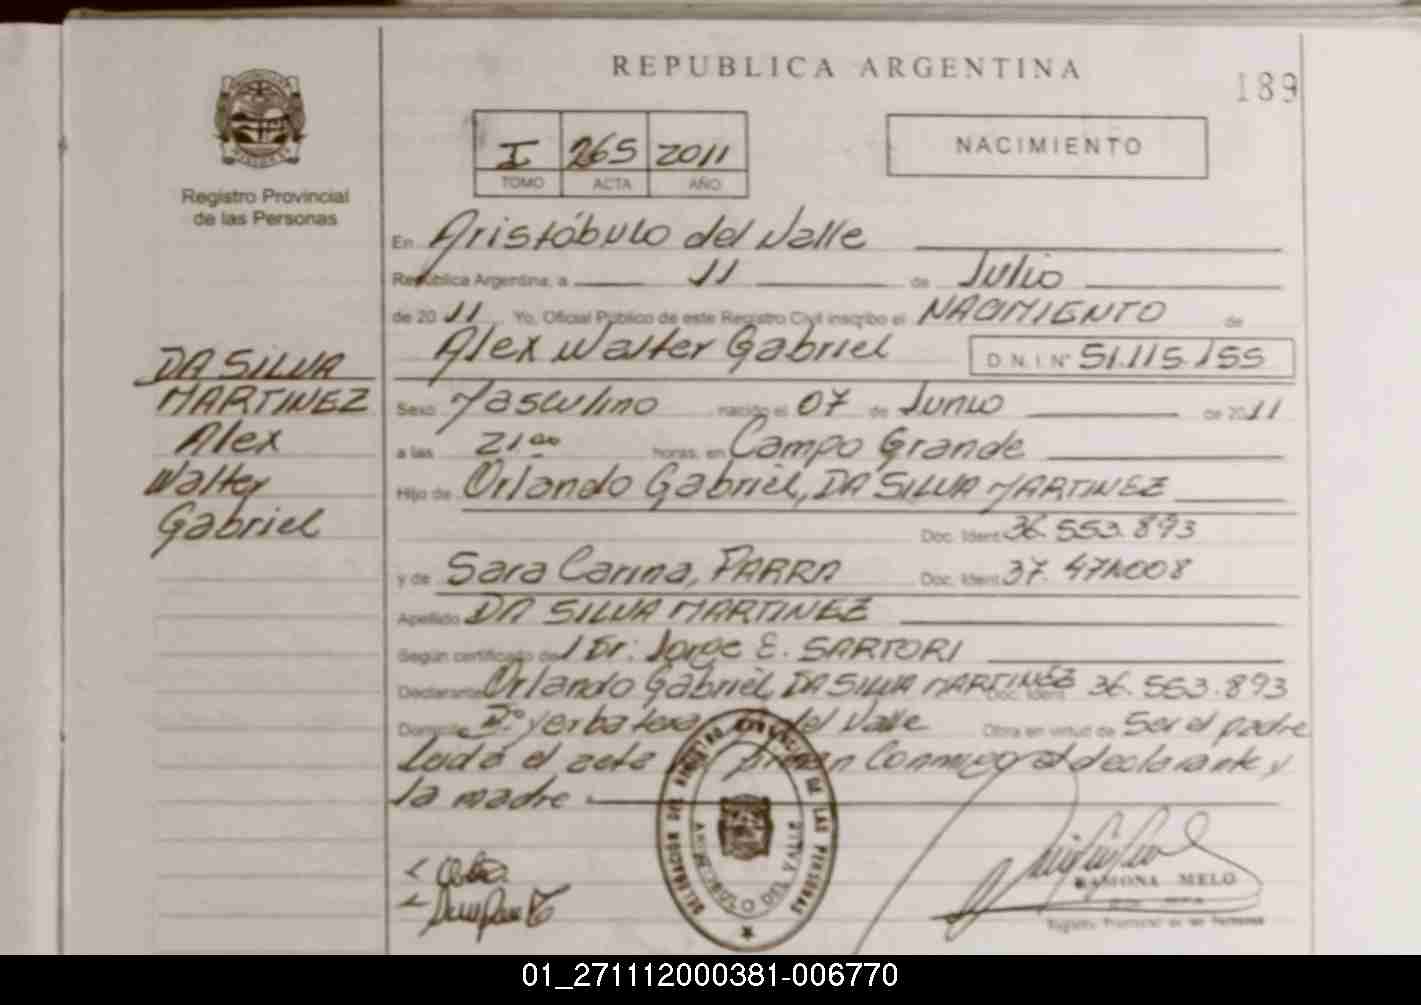 REPUBLICA ARGENTINA
189
Registro Provincial
de las Personas
I 265 2011
TOMO ACTA AÑO
NACIMIENTO
En Aristóbulo del Valle
República Argentina, a 11 de Julio
de 2011 Yo, Oficial Público de este Registro Civil inscribo el NACIMIENTO de
Alex Walter Gabriel D.N.I Nº 51.115.155
DA SILVA
MARTINEZ
Alex
Walter
Gabriel
Sexo Masculino nacido el 07 de Junio de 2011
a las 21 00 horas, en Campo Grande
Hijo de Orlando Gabriel, DA SILVA MARTINEZ
Doc. Ident 36.553.893
y de Sara Carina, PARRA Doc. Ident 37.
Apellido DA SILVA MARTINEZ
Según certificado del Dr: Jorge E. SARTORI
Declarante Orlando Gabriel, DA SILVA MARTINEZ Doc. Ident 36.553.893
Domicilio del Valle Obra en virtud de Ser el padre
Leida el acta Firman Conmigo el declarante y
la madre
DELEGACION DEL REGISTRO PROVINCIAL DE LAS PERSONAS
ARISTOBULO DEL VALLE
RAMONA MELO
Registro Provincial de las Personas
01_271112000381-006770